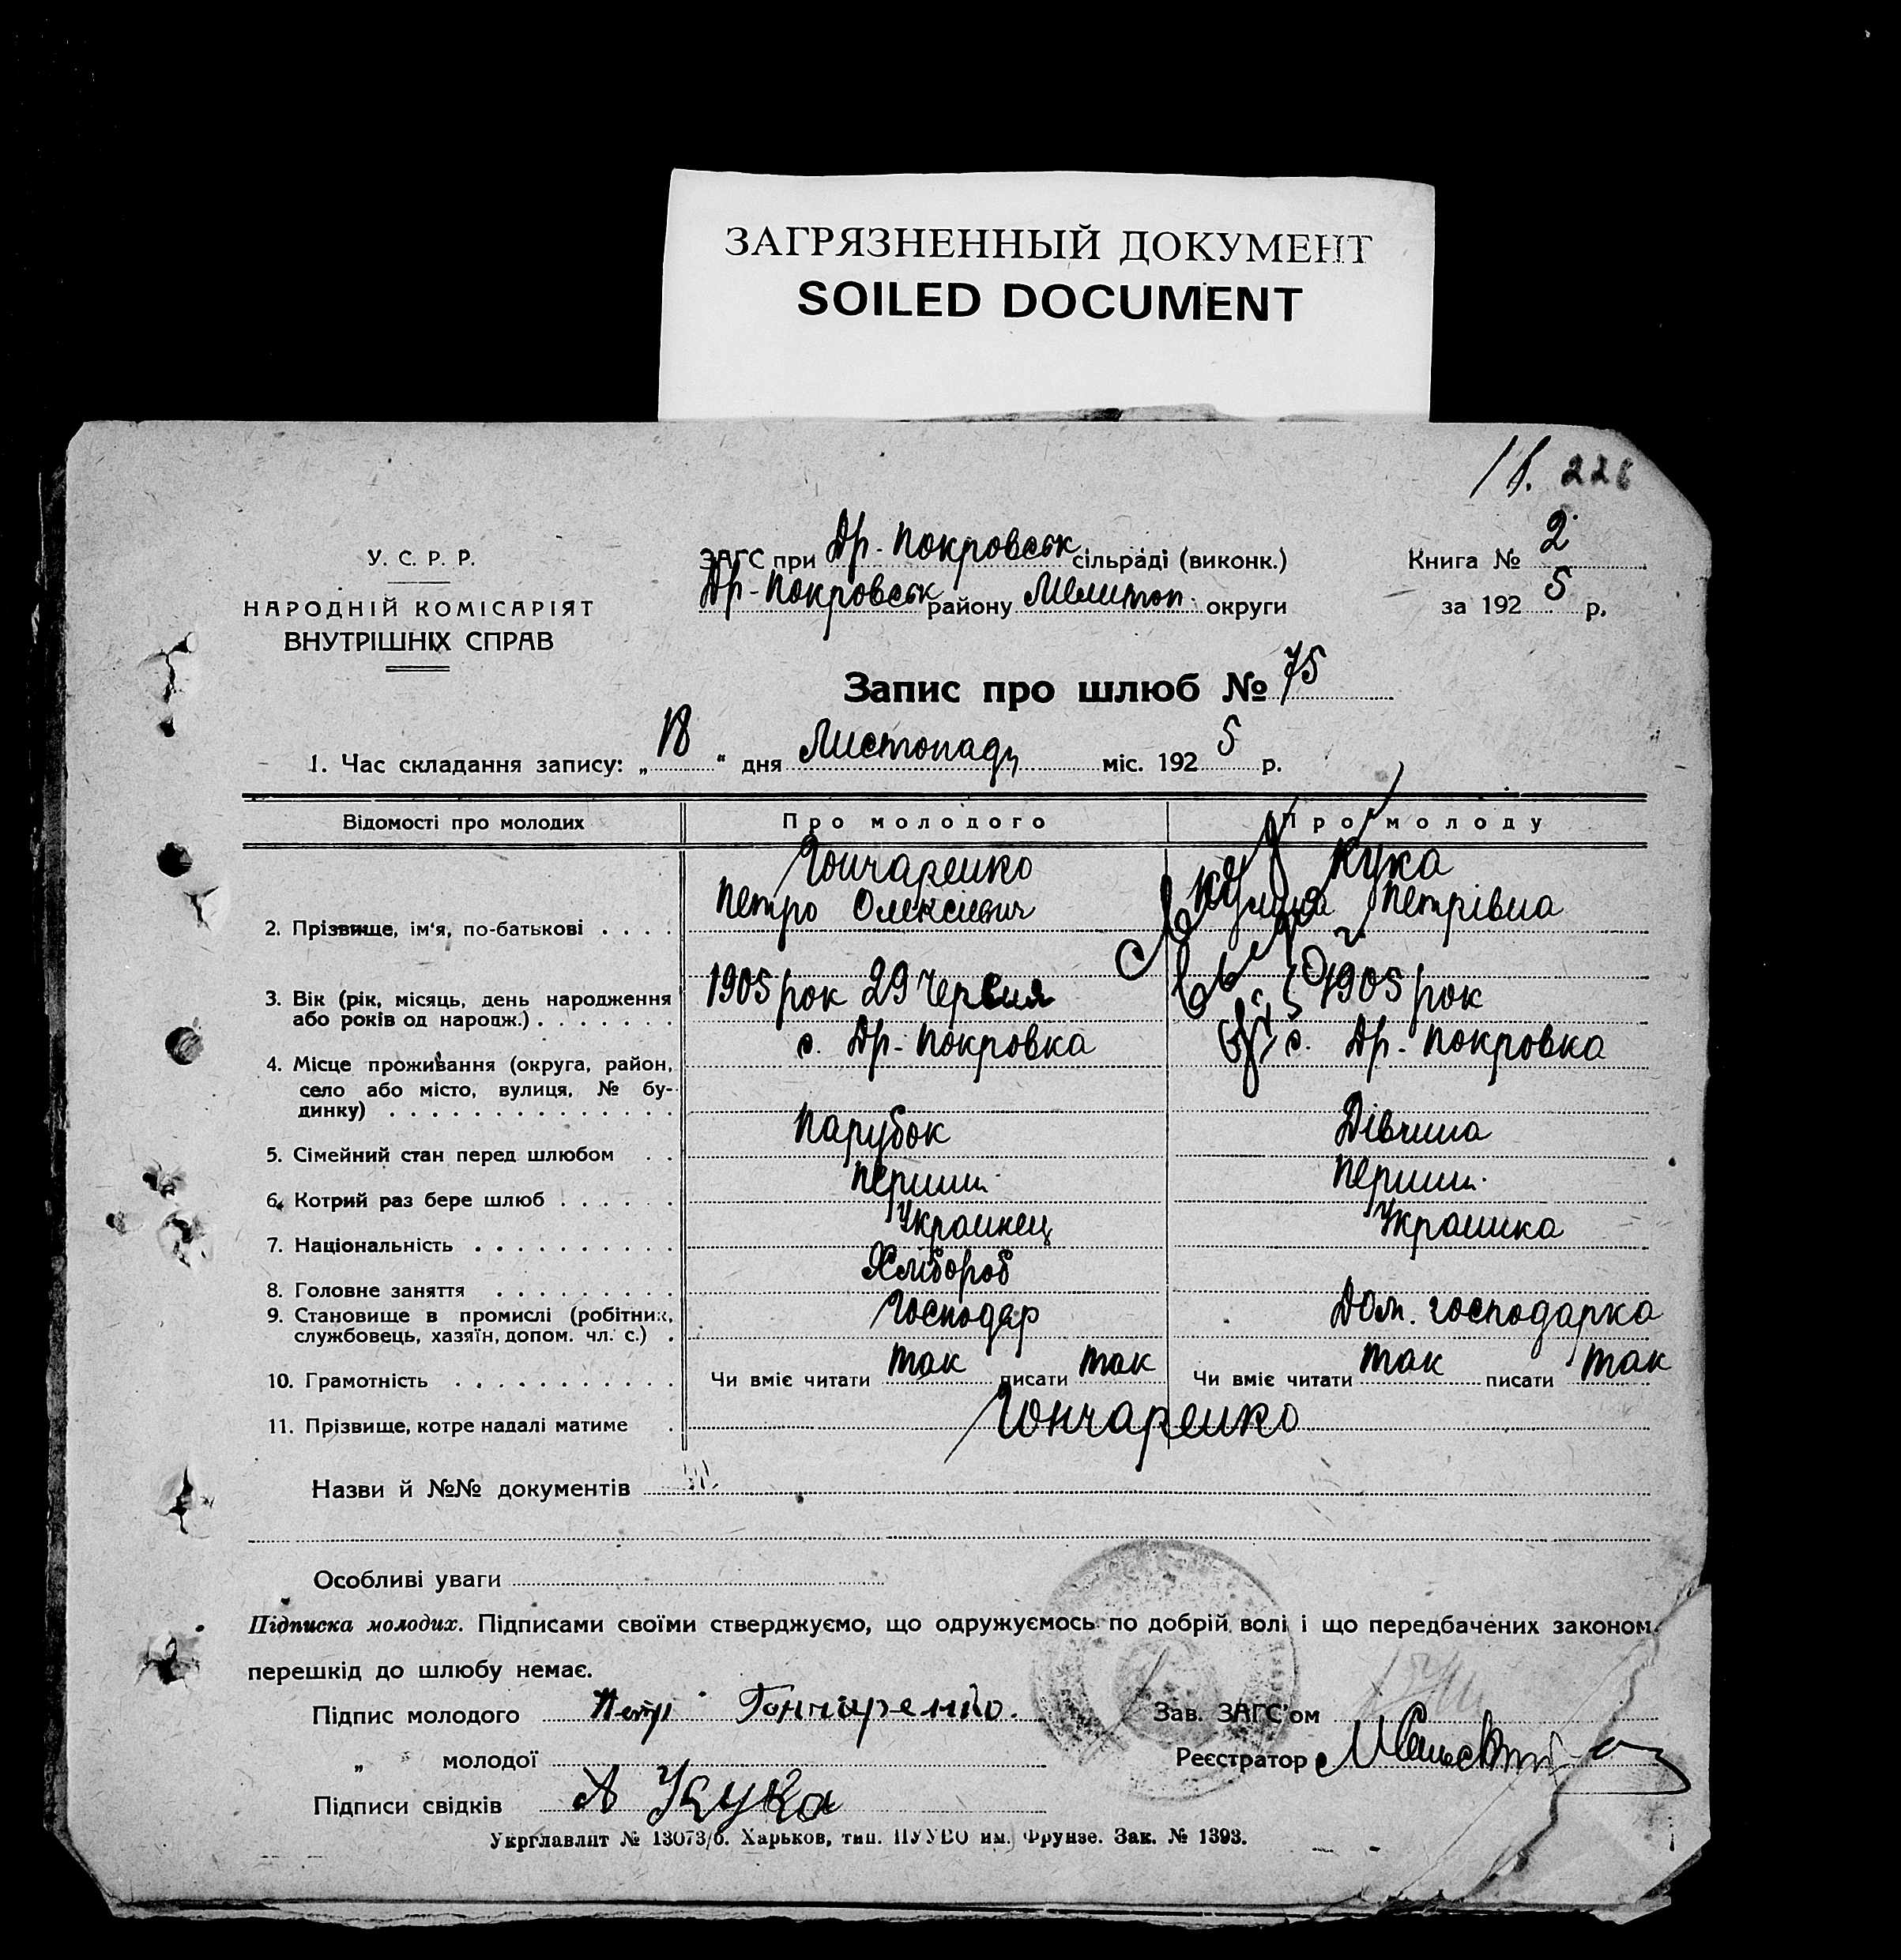 ЗАГРЯЗНЕННЫЙ ДОКУМЕНТ
SOILED DOCUMENT
226
У. С. Р. Р.
НАРОДНІЙ КОМІСАРІЯТ
ВНУТРІШНІХ СПРАВ
ЗАГС при Др.-Покровськ сільраді (виконк.)
Др-Покровськ району Мелитоп. округи
Книга № 2
за 1925 р.
Запис про шлюб № 75
1. Час складання запису: „18“ дня Листопаду міс. 1925 р.
Відомості про молодих Про молодого Про молоду
Гончаренко Кука
2. Прізвище, ім'я, по-батькові . . . . Петро Олексієвич Петрівна
3. Вік (рік, місяць, день народження 1905 рок 29 Червня 1905 рок
або років од народж.) . . . . . . .
4. Місце проживання (округа, район, с. Др.-Покровка с. Др.-Покровка
село або місто, вулиця, № бу-
динку) . . . . . . . . . . . . . .
5. Сімейний стан перед шлюбом . . Парубок Дівчина
6. Котрий раз бере шлюб . . . . . . Перший Перший
7. Національність . . . . . . . . . . Украинец Украинка
8. Головне заняття . . . . . . . . . Хлібороб
9. Становище в промислі (робітник, Господар Дом. господарка
службовець, хазяїн, допом. чл. с.) .
10. Грамотність . . . . . . . . . . . Чи вміє читати так писати так Чи вміє читати так писати так
11. Прізвище, котре надалі матиме . Гончаренко
Назви й №№ документів
Особливі уваги
Підписка молодих. Підписами своїми стверджуємо, що одружуємось по добрій волі і що передбачених законом
перешкід до шлюбу немає.
Підпис молодого Петр Гончаренко. Зав. ЗАГС'ом
„ молодої Реєстратор
Підписи свідків А Кука
Укрглавліт № 13073/б. Харьков, тип. ПУУВО им. Фрунзе. Зак. № 1393.